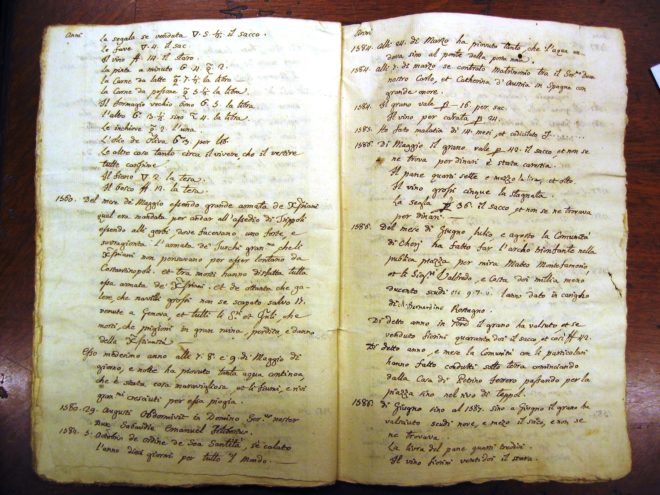 Anni
La segala se venduta ∇. 5 ½. il sacco.
Le fave ∇. 4. il sac.
Il vino 14. il staro.
la pinta a minuto
la Carne da latte 7. ½ la libra
la Carne da 5 ½ la libra.
Il formaggio vechio 6. 3. la libra.
l'altro 6. 1 ½ sino 4. la libra.
2. l'una.
L'olio de Oliva 6. 3. per lib.
Le altre cose tanto circa il vivere che il vestire
tutte carissime
Il fieno ∇. 2. la tesa.
Il bosco 12. la tesa.
1560. Del mese di Maggio essendo grande armata de Xpiani
qual era mandata per andar all'assedio di Tripoli
essendo alle gerbi dove facevano uno forte, e
sovragionta l'armata de Turchi che li
Xpiani non pensavano per esser lontana da
Costantinopoli. et tra morti hanno disfatta tutta
essa armata de Xpiani. et de ottanta che ga-
lere, che navilli grossi non se scapato salvo 17.
venute a Genova, et tutti li
morti, che prigioni in gran ruina, perdita, e danno
della Xpianità.
Esso medesimo anno alli 7. 8. e 9. di Maggio di
giorno, e notte ha piovuto tanta aqua continoa,
che è stata cosa maravigliosa, et li fiumi, e rivi
cresciuti per essa pioggia.
1580. 29. Augusti Obdormivit in Domino noster
Dux Sabaudia Emanuel
1582. 5. Ottobre de ordine de Sua Santità, si è calato
l'anno dieci giorni per tutto 'l Mondo.
Anni
1584. alli 24. di Marzo ha piovuto tanto, che l'aqua an-
dava sino al ponte
1584. alli 7. di marzo se contratti Matrimonio tra il
nostro Carlo, et Catherina d'Austria in Spagna con
grande onore.
1584. Il grano vale 16. per sac.
Il vino per carrata 24.
1585. Ho fato malatia di 14. mesi, et
1586. Di Maggio il grano vale 42. il sacco, et non se
ne trova per dinari è stata carestia.
Il pane quarti sette e mezzo la lira, et otto.
Il vino grossi cinque la stagnata.
La segla 36. il sacco et non se ne trovava
per dinari
1586. Del mese di Giugno Julio, e agosto la Comunità
di Cherj ha fatto far l'archo trionfante nella
publica piazza per mira Matteo
et li e Costa doi millia meno
ducento scudi latino dato in consiglio
di Bernardino
Di detto anno in il grano ha valsuto et se
venduto fiorini quaranta doi il sacco, et cosi 42.
Di detto anno, e mese la Comunità con li particolari
hanno fatto condutti sotto terra cominciando
dalla Casa di Petrino Ferrero passando per la
piazza sino nel rivo di Tappol.
1586. di Giugno sino al 1587. sino a Giugno il grano ha
valsuto scudi nove, e mezo il sacco, e non se
ne trovava.
La livra del pane quarti tredici.
Il vino fiorini venti doi il staro.